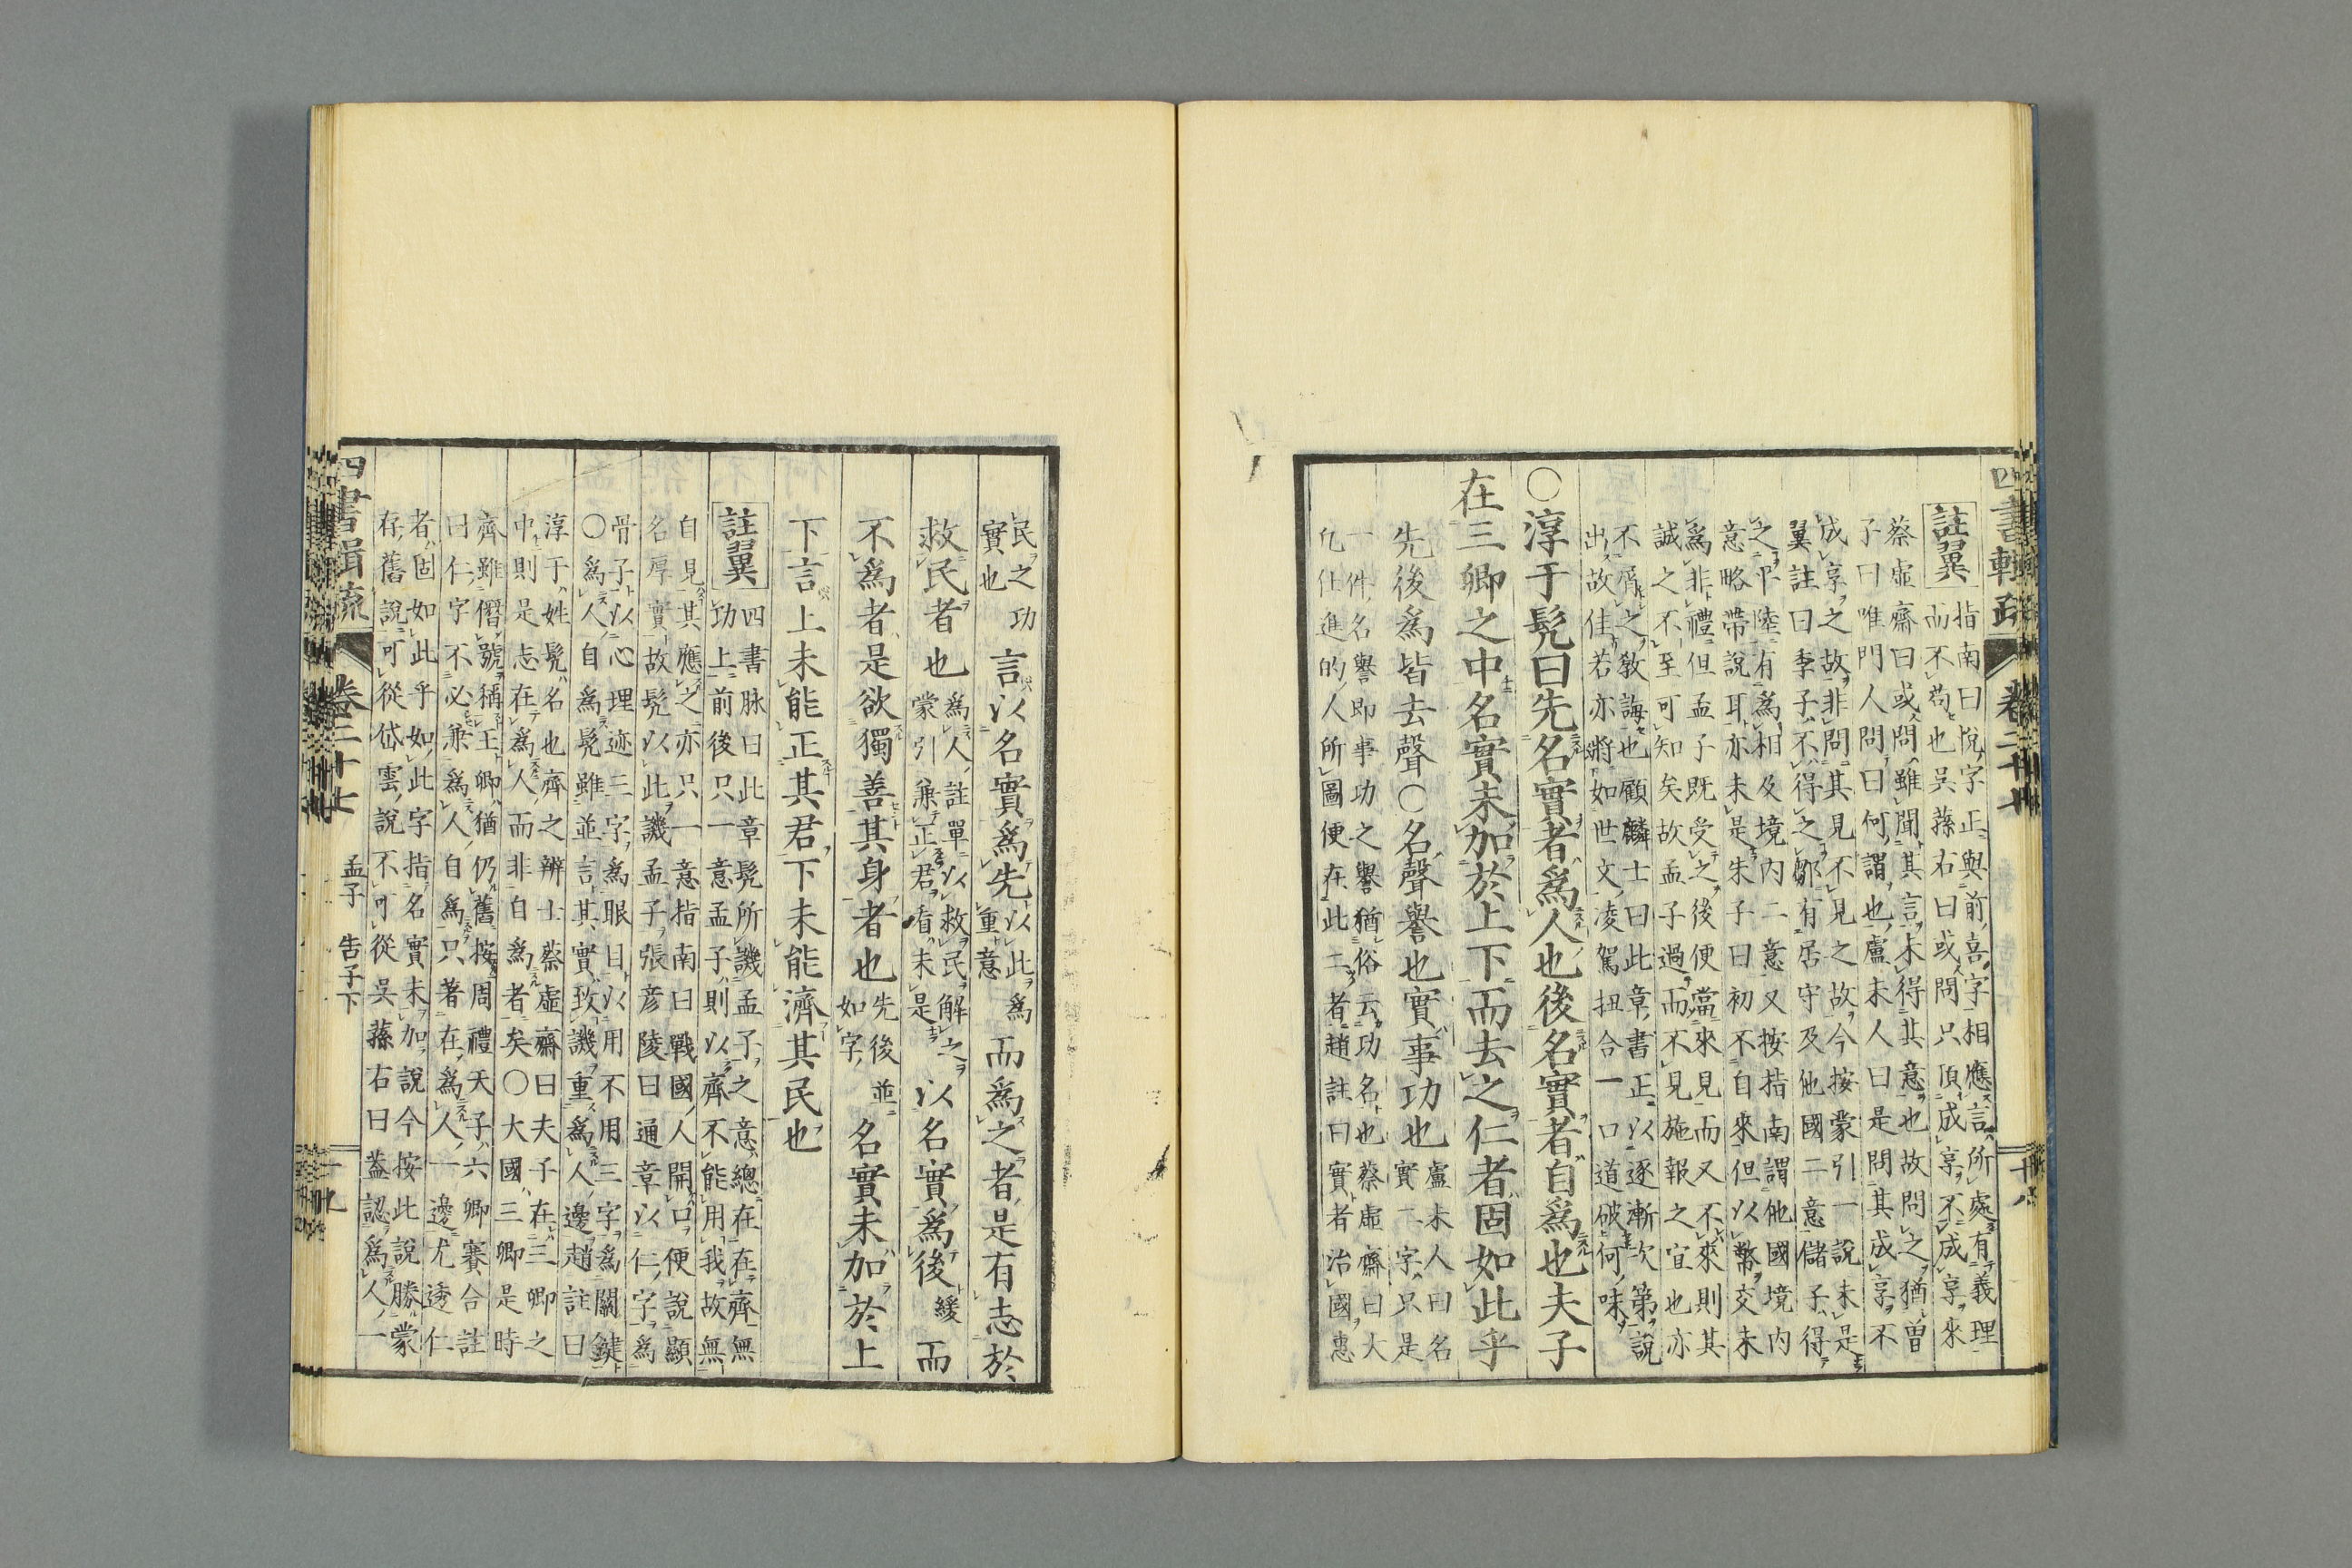 四書輯疏
卷二十七
十八
註翼
指南曰悅字正與前喜字相應言所處有義理
而不苟也吳蓀右曰或問只頂成享不成享來
蔡虛齋曰或問雖聞其言未得其意也故問之猶曾
子曰唯門人問曰何謂也盧未人曰是問其成享不
成享之故非問其見不見之故今按蒙引一說未是
翼註曰季子不得之鄒有居守及他國二意儲子得
之平陸有爲相及境內二意又按指南謂他國境內
意略帶說耳亦未是朱子曰初不自來但以幣交未
爲非禮但孟子既受之後便當來見而又不來則其
誠之不至可知矣故孟子過而不見施報之宜也亦
不屑之敎誨也顧麟士曰此章書正以逐漸次第說
出故佳若亦將如世文凌駕扭合一口道破何味
○淳于髡曰先名實者爲人也後名實者自爲也夫子
在三卿之中名實未加於上下而去之仁者固如此乎
先後爲皆去聲○名聲譽也實事功也
盧未人曰名
實二字只是
一件名譽即事功之譽猶俗云功名也蔡虛齋曰大
凡仕進的人所圖便在此二者趙註曰實者治國惠
民之功
實也
言以名實爲先
以此爲
重意
而爲之者是有志於
救民者也
爲人註單以救民解之
蒙引兼正君看未是
以名實爲後
緩
而
不爲者是欲獨善其身者也
先後並
如字
名實未加於上
下言上未能正其君下未能濟其民也
註翼
四書脉曰此章髡所譏孟子之意總在在齊無
功上前後只一意孟子則以齊不能用我故無
自見其應之亦只一意指南曰戰國人開口便說顯
名厚實故髡以此譏孟子張彥陵曰通章以仁字爲
骨子以心理迹三字爲眼目以用不用三字爲關鍵
○爲人自爲髡雖並言其實致譏重爲人邊趙註曰
淳于姓髡名也齊之辨士蔡虛齋曰夫子在三卿之
中則是志在爲人而非自爲者矣○大國三卿是時
齊雖僭號稱王卿猶仍舊按周禮天子六卿賽合註
曰仁字不必兼爲人自爲只著在爲人一邊尤透仁
者固如此乎如此字指名實未加說今按此說勝蒙
存舊說可從岱雲說不可從吳蓀右曰蓋認爲人一
四書輯疏
卷二十七
孟子
告子下
十九